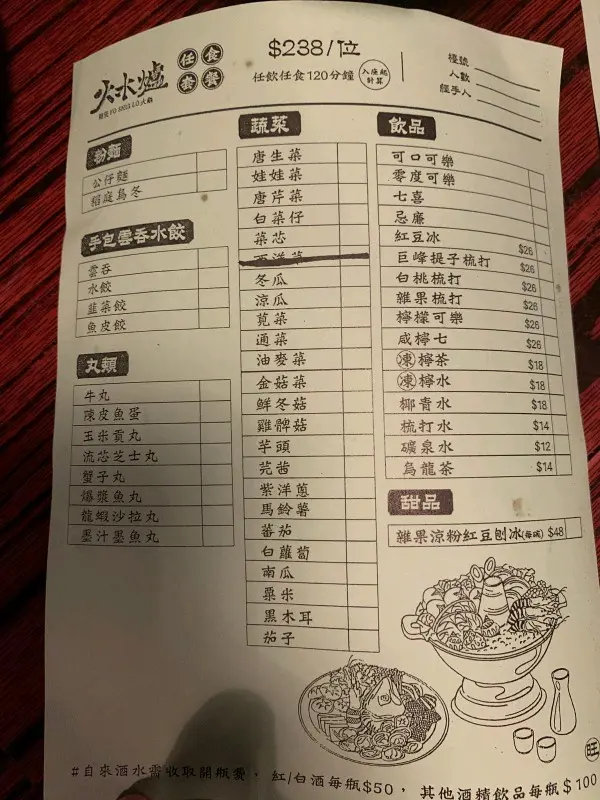 火水爐
任食
套餐
$238/位
任飲任食120分鐘
入座起
計算
檯號
人數
經手人
粉麵
公仔麵
稻庭烏冬
手包雲吞水餃
雲吞
水餃
韮菜餃
魚皮餃
丸類
牛丸
陳皮魚蛋
玉米貢丸
流芯芝士丸
蟹子丸
爆漿魚丸
龍蝦沙拉丸
墨汁墨魚丸
蔬菜
唐生菜
娃娃菜
唐芹菜
白菜仔
菜芯
西洋菜
冬瓜
涼瓜
莧菜
通菜
油麥菜
金菇菜
鮮冬菇
雞髀菇
芋頭
芫茜
紫洋蔥
馬鈴薯
蕃茄
白蘿蔔
南瓜
粟米
黑木耳
茄子
飲品
可口可樂
零度可樂
七喜
忌廉
紅豆冰 $26
巨峰提子梳打 $26
白桃梳打 $26
雜果梳打 $26
檸檬可樂 $26
咸檸七 $26
凍檸茶 $18
凍檸水 $18
椰青水 $18
梳打水 $14
礦泉水 $12
烏龍茶 $14
甜品
雜果涼粉紅豆刨冰(每碗) $48
旺
#自來酒水需收取開瓶費，紅/白酒每瓶$50，其他酒精飲品每瓶$100